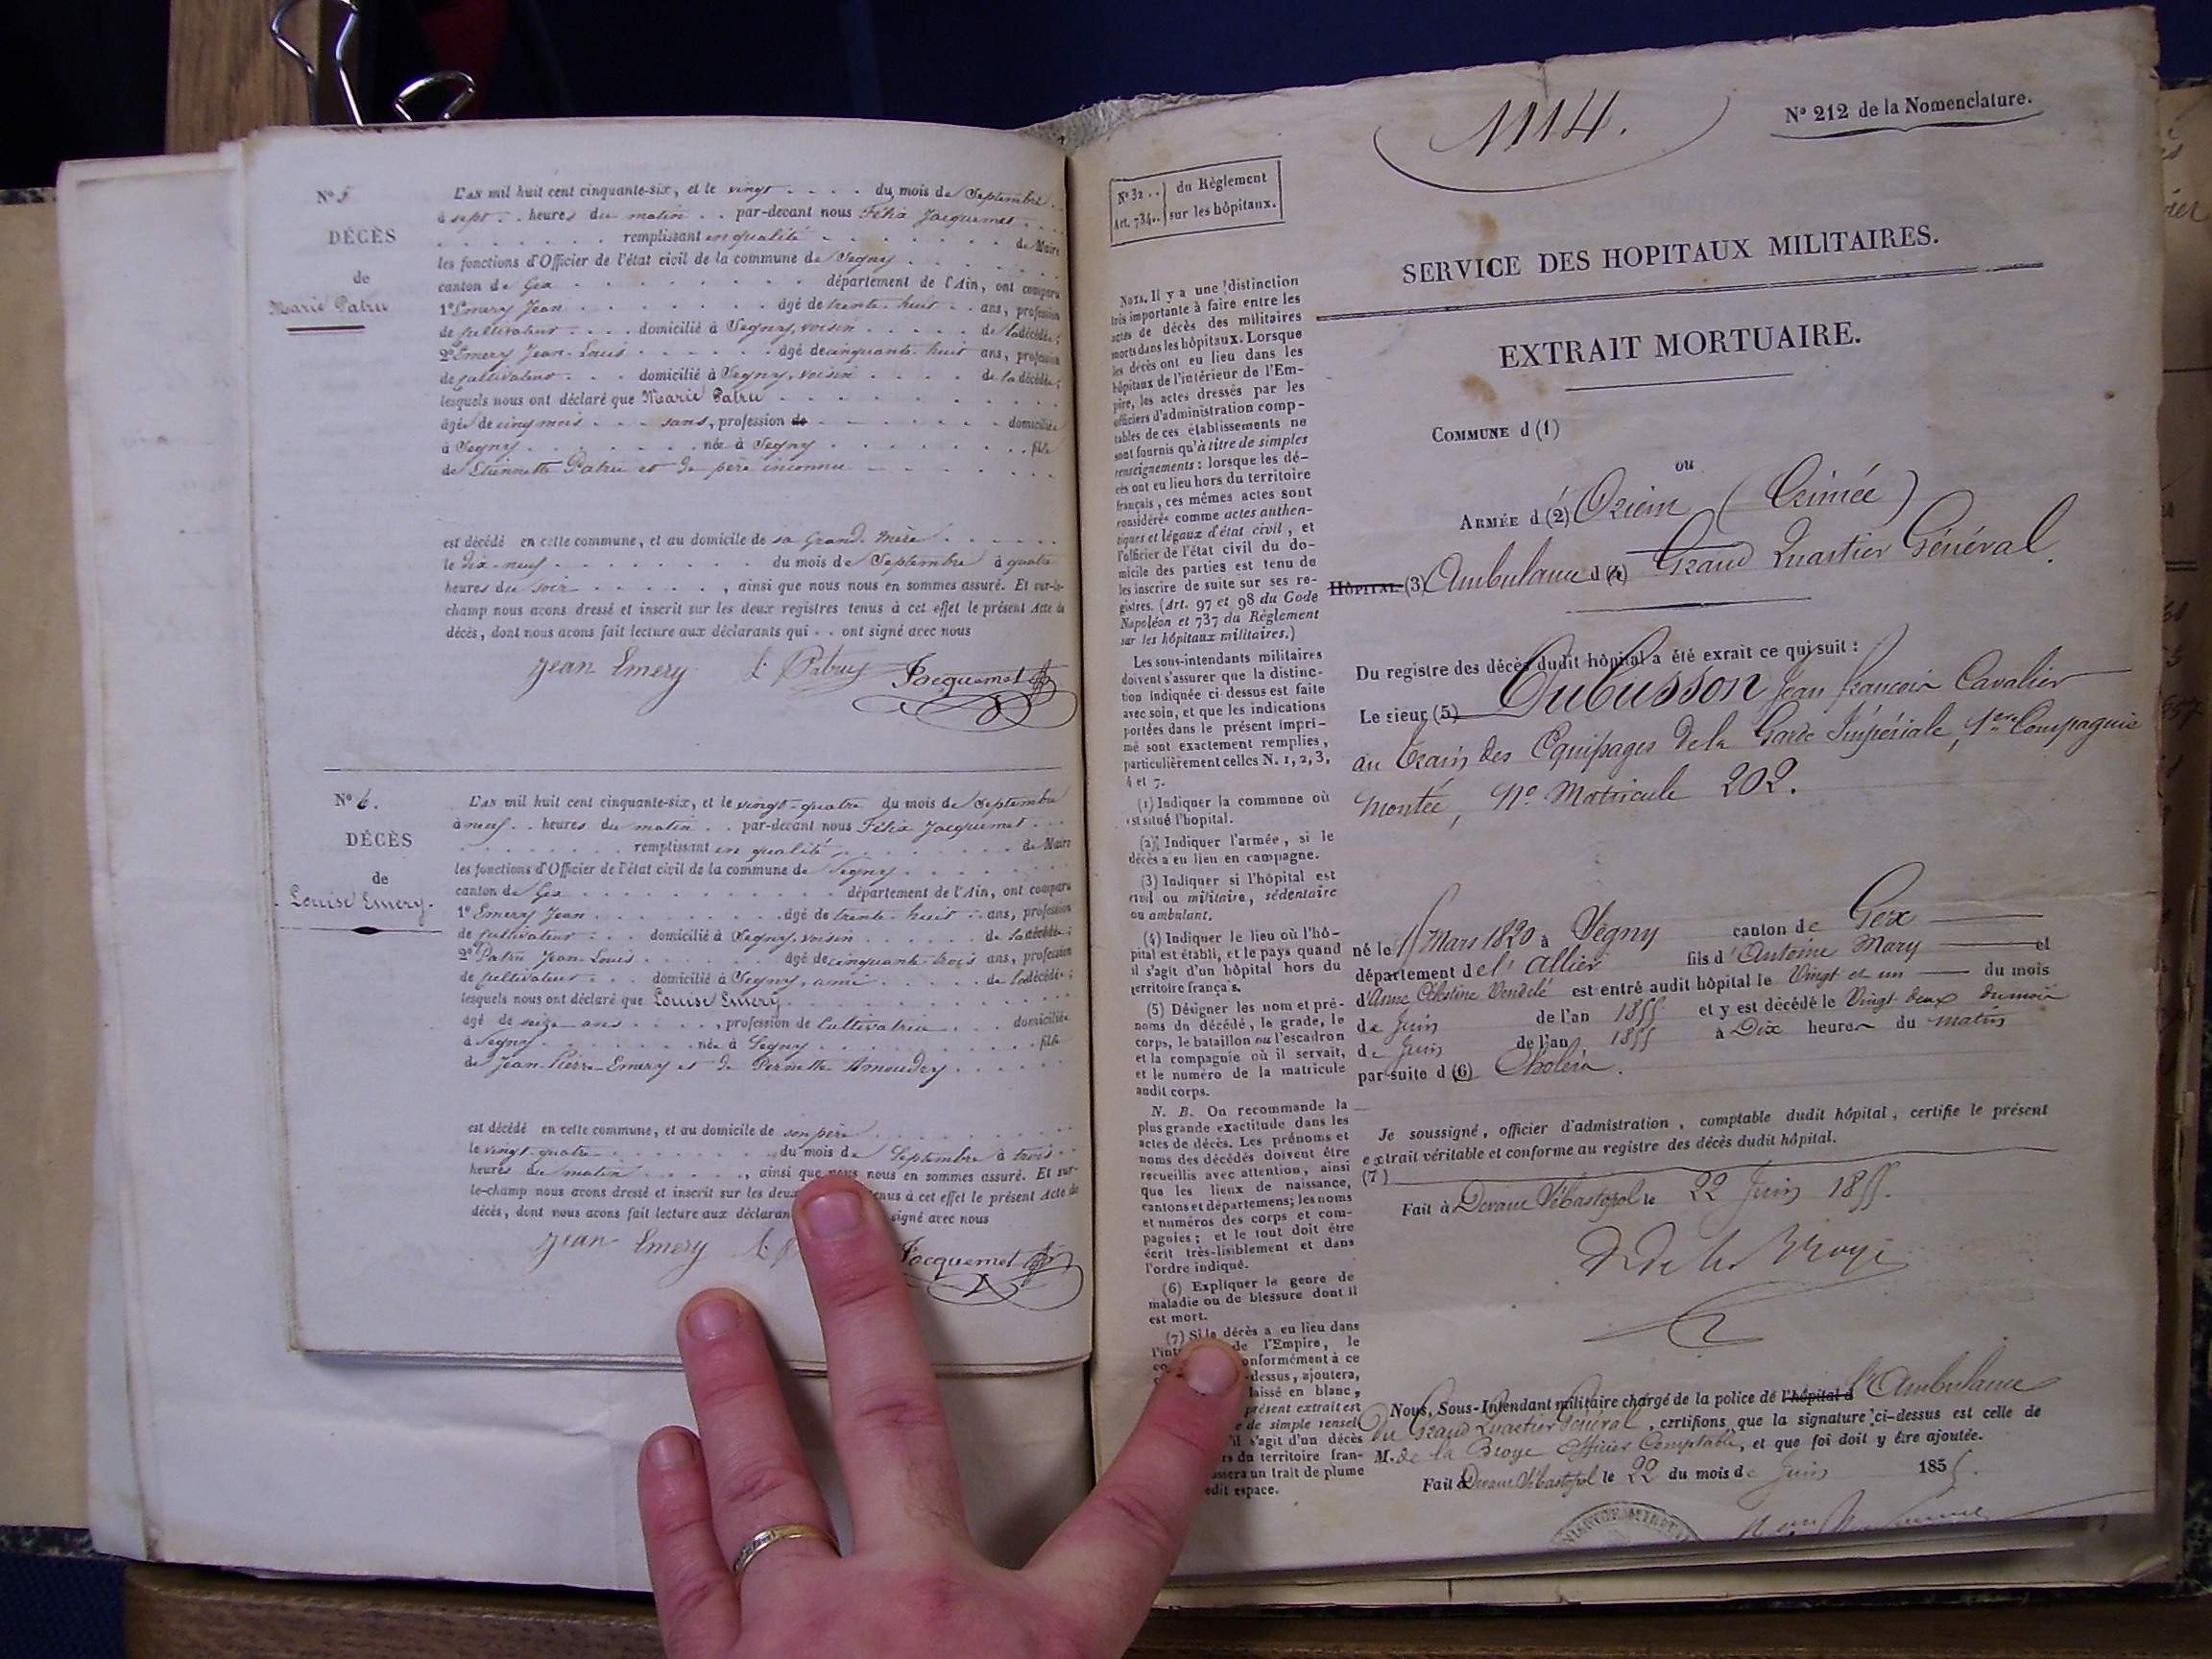 N° 5
DÉCÈS
de
Marie Patru
L'AN mil huit cent cinquante-six, et le vingt . . . . du mois de Septembre . .
à sept . . heures du matin . . par-devant nous Félix Jacquemet . . . .
. . . . . . . remplissant en qualité . . . . . . . . de Maire
les fonctions d'Officier de l'état civil de la commune de Segny . . . . . .
canton de Gex . . . . . . . . département de l'Ain, ont comparu
1° Emery Jean . . . . . . . . âgé de trente-huit . . ans, profession
de cultivateur . . . domicilié à Segny, voisin . . . . . de la décédée;
2° Emery Jean-Louis . . . . . . âgé de cinquante-huit ans, profession
de cultivateur . . . domicilié à Segny, voisin . . . . de la décédée;
lesquels nous ont déclaré que Marie Patru . . . . . . . . . .
âgée de cinq mois . . . sans, profession de . . . . . . . . domiciliée
à Segny . . . . . . . née à Segny . . . . . . . . . fille
de Étiennette Patru et de père inconnu . . . . . . . .
est décédé en cette commune, et au domicile de sa Grand-Mère . . . . . .
le dix-neuf . . . . . . . . . du mois de Septembre à quatre
heures du soir . . . . . . , ainsi que nous nous en sommes assuré. Et sur-le-
champ nous avons dressé et inscrit sur les deux registres tenus à cet effet le présent Acte de
décès, dont nous avons fait lecture aux déclarants qui . . ont signé avec nous
Jean Emery Jacquemet
N° 6.
DÉCÈS
de
Louise Emery.
L'AN mil huit cent cinquante-six, et le vingt-quatre du mois de Septembre
à neuf . . heures du matin . . par-devant nous Félix Jacquemet . . .
. . . . . . . remplissant en qualité . . . . . . . . de Maire
les fonctions d'Officier de l'état civil de la commune de Segny . . . . . .
canton de Gex . . . . . . . . . . département de l'Ain, ont comparu
1° Emery Jean . . . . . . . . âgé de trente-huit . . ans, profession
de cultivateur . . . domicilié à Segny, voisin . . . . . de la décédée;
2° Patru Jean-Louis . . . . . . âgé de cinquante-trois ans, profession
de cultivateur . . . domicilié à Segny, ami . . . . . de la décédée;
lesquels nous ont déclaré que Louise Emery . . . . . . . . . .
âgé de seize ans . . . . . , profession de Cultivatrice . . . domiciliée
à Segny . . . . . . . née à Segny . . . . . . . . . fille
de Jean-Pierre Emery et de Pernette Amoudry . . . . . .
est décédé en cette commune, et au domicile de son père . . . . . . . .
le vingt-quatre . . . . . . . du mois de Septembre à trois . .
heures du matin . . . . . , ainsi que nous nous en sommes assuré. Et sur-
le-champ nous avons dressé et inscrit sur les deux tenus à cet effet le présent Acte de
décès, dont nous avons fait lecture aux déclaran signé avec nous
Jean Emery Jacquemet
1114.
N° 212 de la Nomenclature.
N° 32 . . du Règlement
Art. 734 . . sur les hôpitaux.
SERVICE DES HOPITAUX MILITAIRES.
EXTRAIT MORTUAIRE.
NOTA. Il y a une distinction
très importante à faire entre les
actes de décès des militaires
morts dans les hôpitaux. Lorsque
les décès ont eu lieu dans les
hôpitaux de l'intérieur de l'Em-
pire, les actes dressés par les
officiers d'administration comp-
tables de ces établissements ne
sont fournis qu'à titre de simples
renseignements : lorsque les dé-
cès ont eu lieu hors du territoire
français, ces mêmes actes sont
considérés comme actes authen-
tiques et légaux d'état civil, et
l'officier de l'état civil du do-
micile des parties est tenu de
les inscrire de suite sur ses re-
gistres. (Art. 97 et 98 du Code
Napoléon et 737 du Règlement
sur les hôpitaux militaires.)
Les sous-intendants militaires
doivent s'assurer que la distinc-
tion indiquée ci-dessus est faite
avec soin, et que les indications
portées dans le présent impri-
mé sont exactement remplies,
particulièrement celles N. 1, 2, 3,
4 et 7.
(1) Indiquer la commune où
est situé l'hopital.
(2) Indiquer l'armée, si le
décès a eu lieu en campagne.
(3) Indiquer si l'hôpital est
civil ou militaire, sédentaire
ou ambulant.
(4) Indiquer le lieu où l'hô-
pital est établi, et le pays quand
il s'agit d'un hôpital hors du
territoire français.
(5) Désigner les nom et pré-
noms du décédé, le grade, le
corps, le bataillon ou l'escadron
et la compagnie où il servait,
et le numéro de la matricule
audit corps.
N. B. On recommande la
plus grande exactitude dans les
actes de décès. Les prénoms et
noms des décédés doivent être
recueillis avec attention, ainsi
que les lieux de naissance,
cantons et départemens; les noms
et numéros des corps et com-
pagnies; et le tout doit être
écrit très-lisiblement et dans
l'ordre indiqué.
(6) Expliquer le genre de
maladie ou de blessure dont il
est mort.
(7) Si le décès a eu lieu dans
l'int de l'Empire, le
co onformément à ce
-dessus, ajoutera,
laissé en blanc,
présent extrait est
e de simple rensei-
'il s'agit d'un décès
rs du territoire fran-
ssera un trait de plume
edit espace.
COMMUNE d (1)
ou
ARMÉE d (2) Orient (Crimée)
HÔPITAL (3) Ambulance d (4) Grand Quartier Général.
Du registre des décès dudit hôpital a été exrait ce qui suit :
Le sieur (5) Dubusson Jean François Cavalier
au train des Equipages de la Garde Impériale, 1ère Compagnie
montée, N° Matricule 202.
né le 15 Mars 1820 à Ségny canton de Gex
département de l'Allier fils d'Antoine Mary et
d'Anne Célestine Vendelé est entré audit hôpital le Vingt et un du mois
de Juin de l'an 1855 et y est décédé le Vingt deux du mois
de Juin de l'an 1855 à Dix heures du matin
par suite d (6) Choléra.
Je soussigné, officier d'admistration, comptable dudit hôpital, certifie le présent
extrait véritable et conforme au registre des décès dudit hôpital.
(7)
Fait à Devant Sébastopol le 22 Juin 1855.
D de la Broye
Nous, Sous-Intendant militaire chargé de la police de l'hôpital d l'Ambulance
du Grand Quartier Général, certifions que la signature ci-dessus est celle de
M. de la Broye Officier Comptable, et que foi doit y être ajoutée.
Fait à Devant Sébastopol le 22 du mois de Juin 1855.